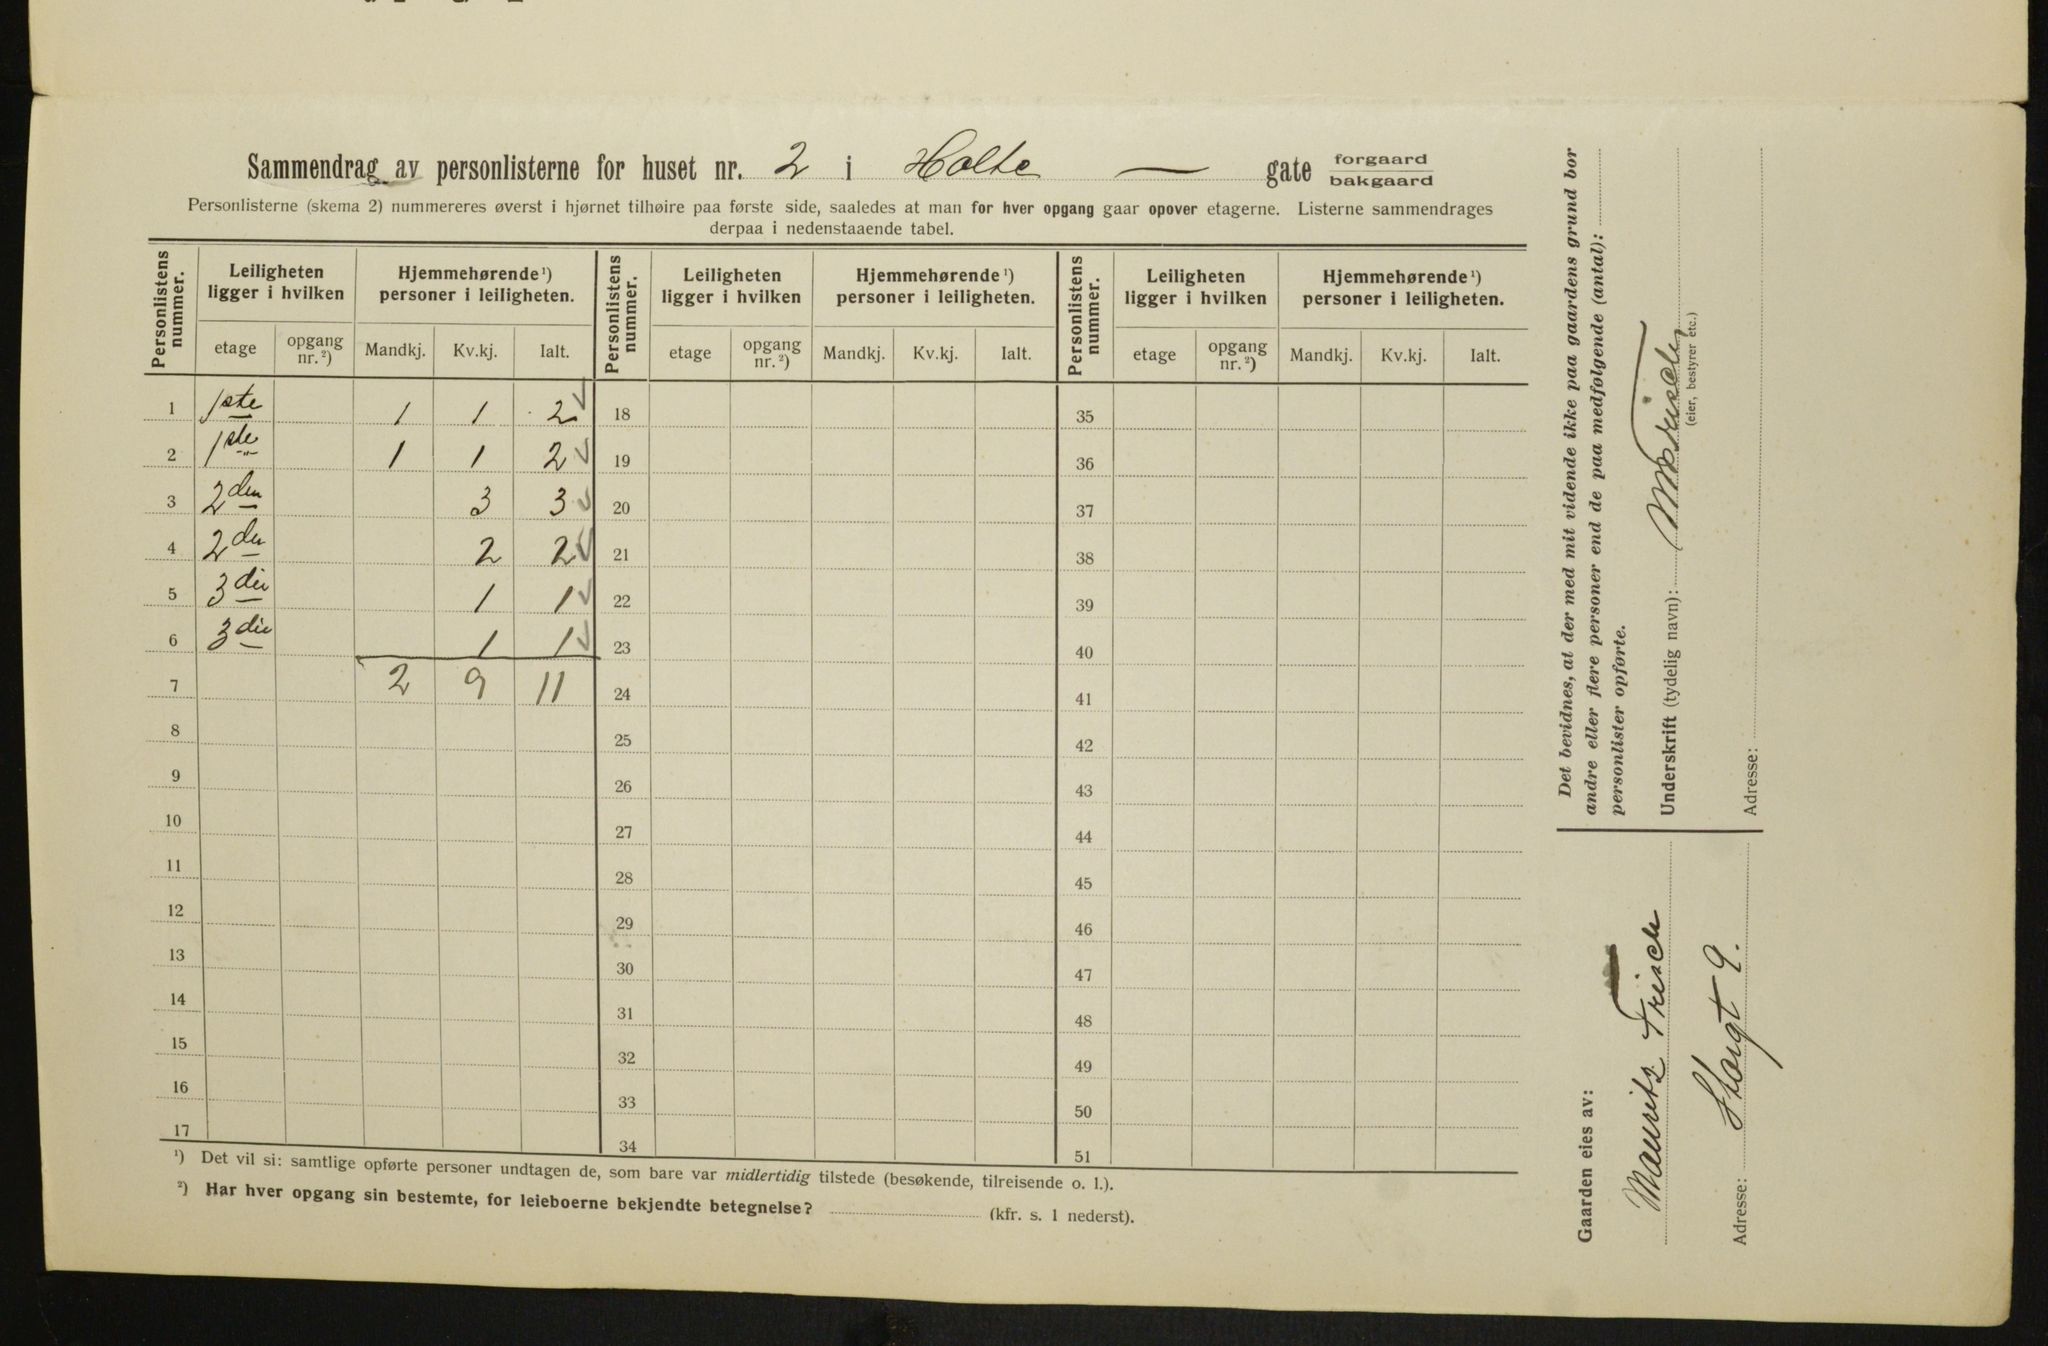 Sammendrag av personlisterne for huset nr. 2 i Holte — gate forgaard bakgaard
Personlisterne (skema 2) nummereres øverst i hjørnet tilhøire paa første side, saaledes at man for hver opgang gaar opover etagerne. Listerne sammendrages
derpaa i nedenstaaende tabel.
Personlistens nummer. Leiligheten ligger i hvilken Hjemmehørende ¹) personer i leiligheten. Personlistens nummer. Leiligheten ligger i hvilken Hjemmehørende ¹) personer i leiligheten. Personlistens nummer. Leiligheten ligger i hvilken Hjemmehørende ¹) personer i leiligheten.
etage opgang nr. ²) Mandkj. Kv.kj. Ialt. etage opgang nr. ²) Mandkj. Kv.kj. Ialt. etage opgang nr. ²) Mandkj. Kv.kj. Ialt.
1 1ste 1 1 2 18 35
2 1ste 1 1 2 19 36
3 2den 3 3 20 37
4 2den 2 2 21 38
5 3die 1 1 22 39
6 3die 1 1 23 40
7 2 9 11 24 41
8 25 42
9 26 43
10 27 44
11 28 45
12 29 46
13 30 47
14 31 48
15 32 49
16 33 50
17 34 51
¹) Det vil si: samtlige opførte personer undtagen de, som bare var midlertidig tilstede (besøkende, tilreisende o. l.).
²) Har hver opgang sin bestemte, for leieboerne bekjendte betegnelse? (kfr. s. 1 nederst).
Det bevidnes, at der med mit vidende ikke paa gaardens grund bor
andre eller flere personer end de paa medfølgende (antal):
personlister opførte.
Underskrift (tydelig navn): M Frisch
(eier, bestyrer etc.)
Adresse:
Gaarden eies av:
Mauritz Frisch
Adresse: Storgt 9.